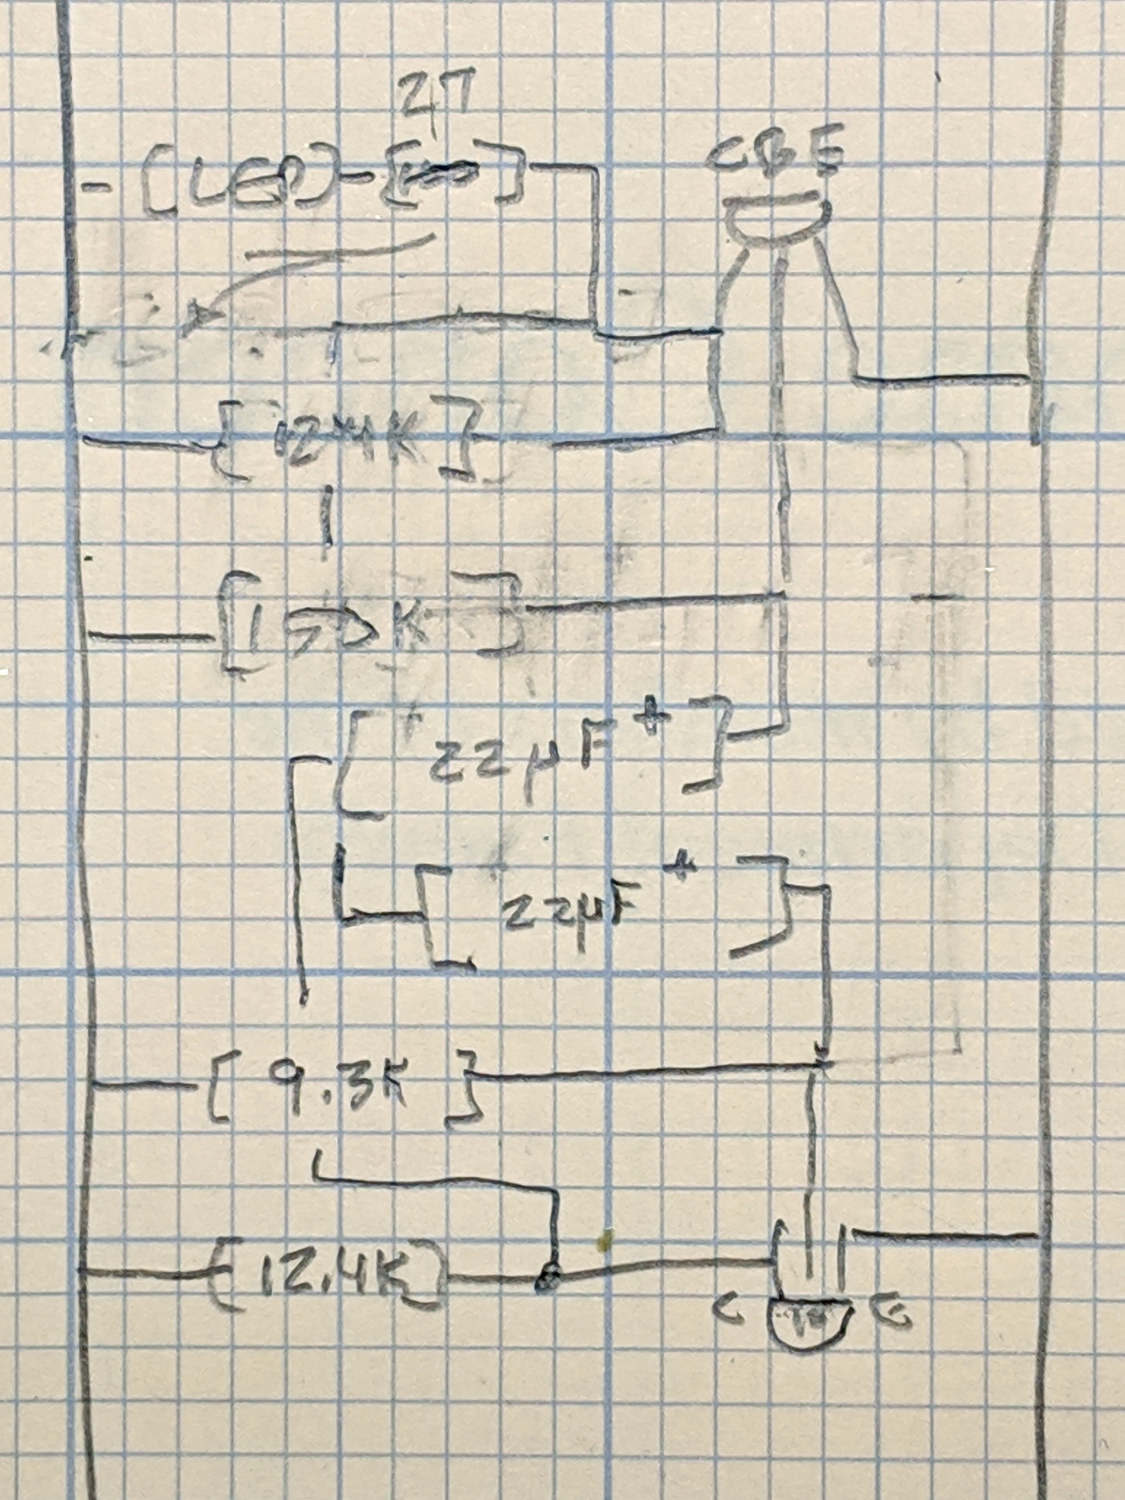 27
[LED]
C B E
[12.4K]
[150K]
[22μF+]
[22μF+]
[9.3K]
[12.4K]
C E